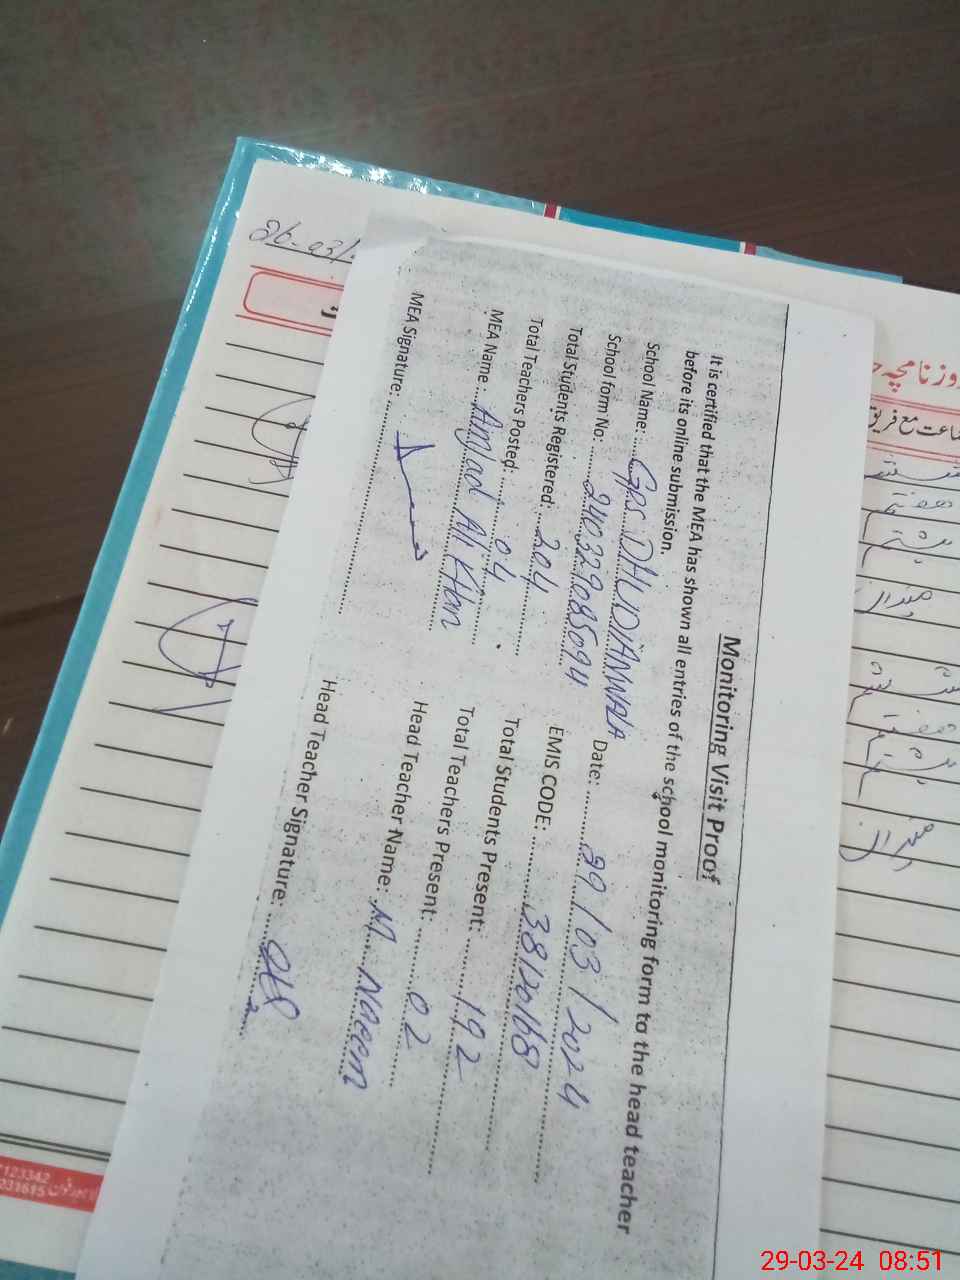 Monitoring Visit Proof
It is certified that the MEA has shown all entries of the school monitoring form to the head teacher
before its online submission.
School Name: GPS DHUDIANWALA Date: 29/03/2024
School form No: 240329085094 EMIS CODE: 38120168
Total Students Registered: 204 Total Students Present: 192
Total Teachers Posted: 04 Total Teachers Present: 02
MEA Name: Amjad Ali Khan Head Teacher Name: M. Naeem
MEA Signature: Head Teacher Signature:
روزنامچہ
مع فریق
123342
231615
29-03-24 08:51